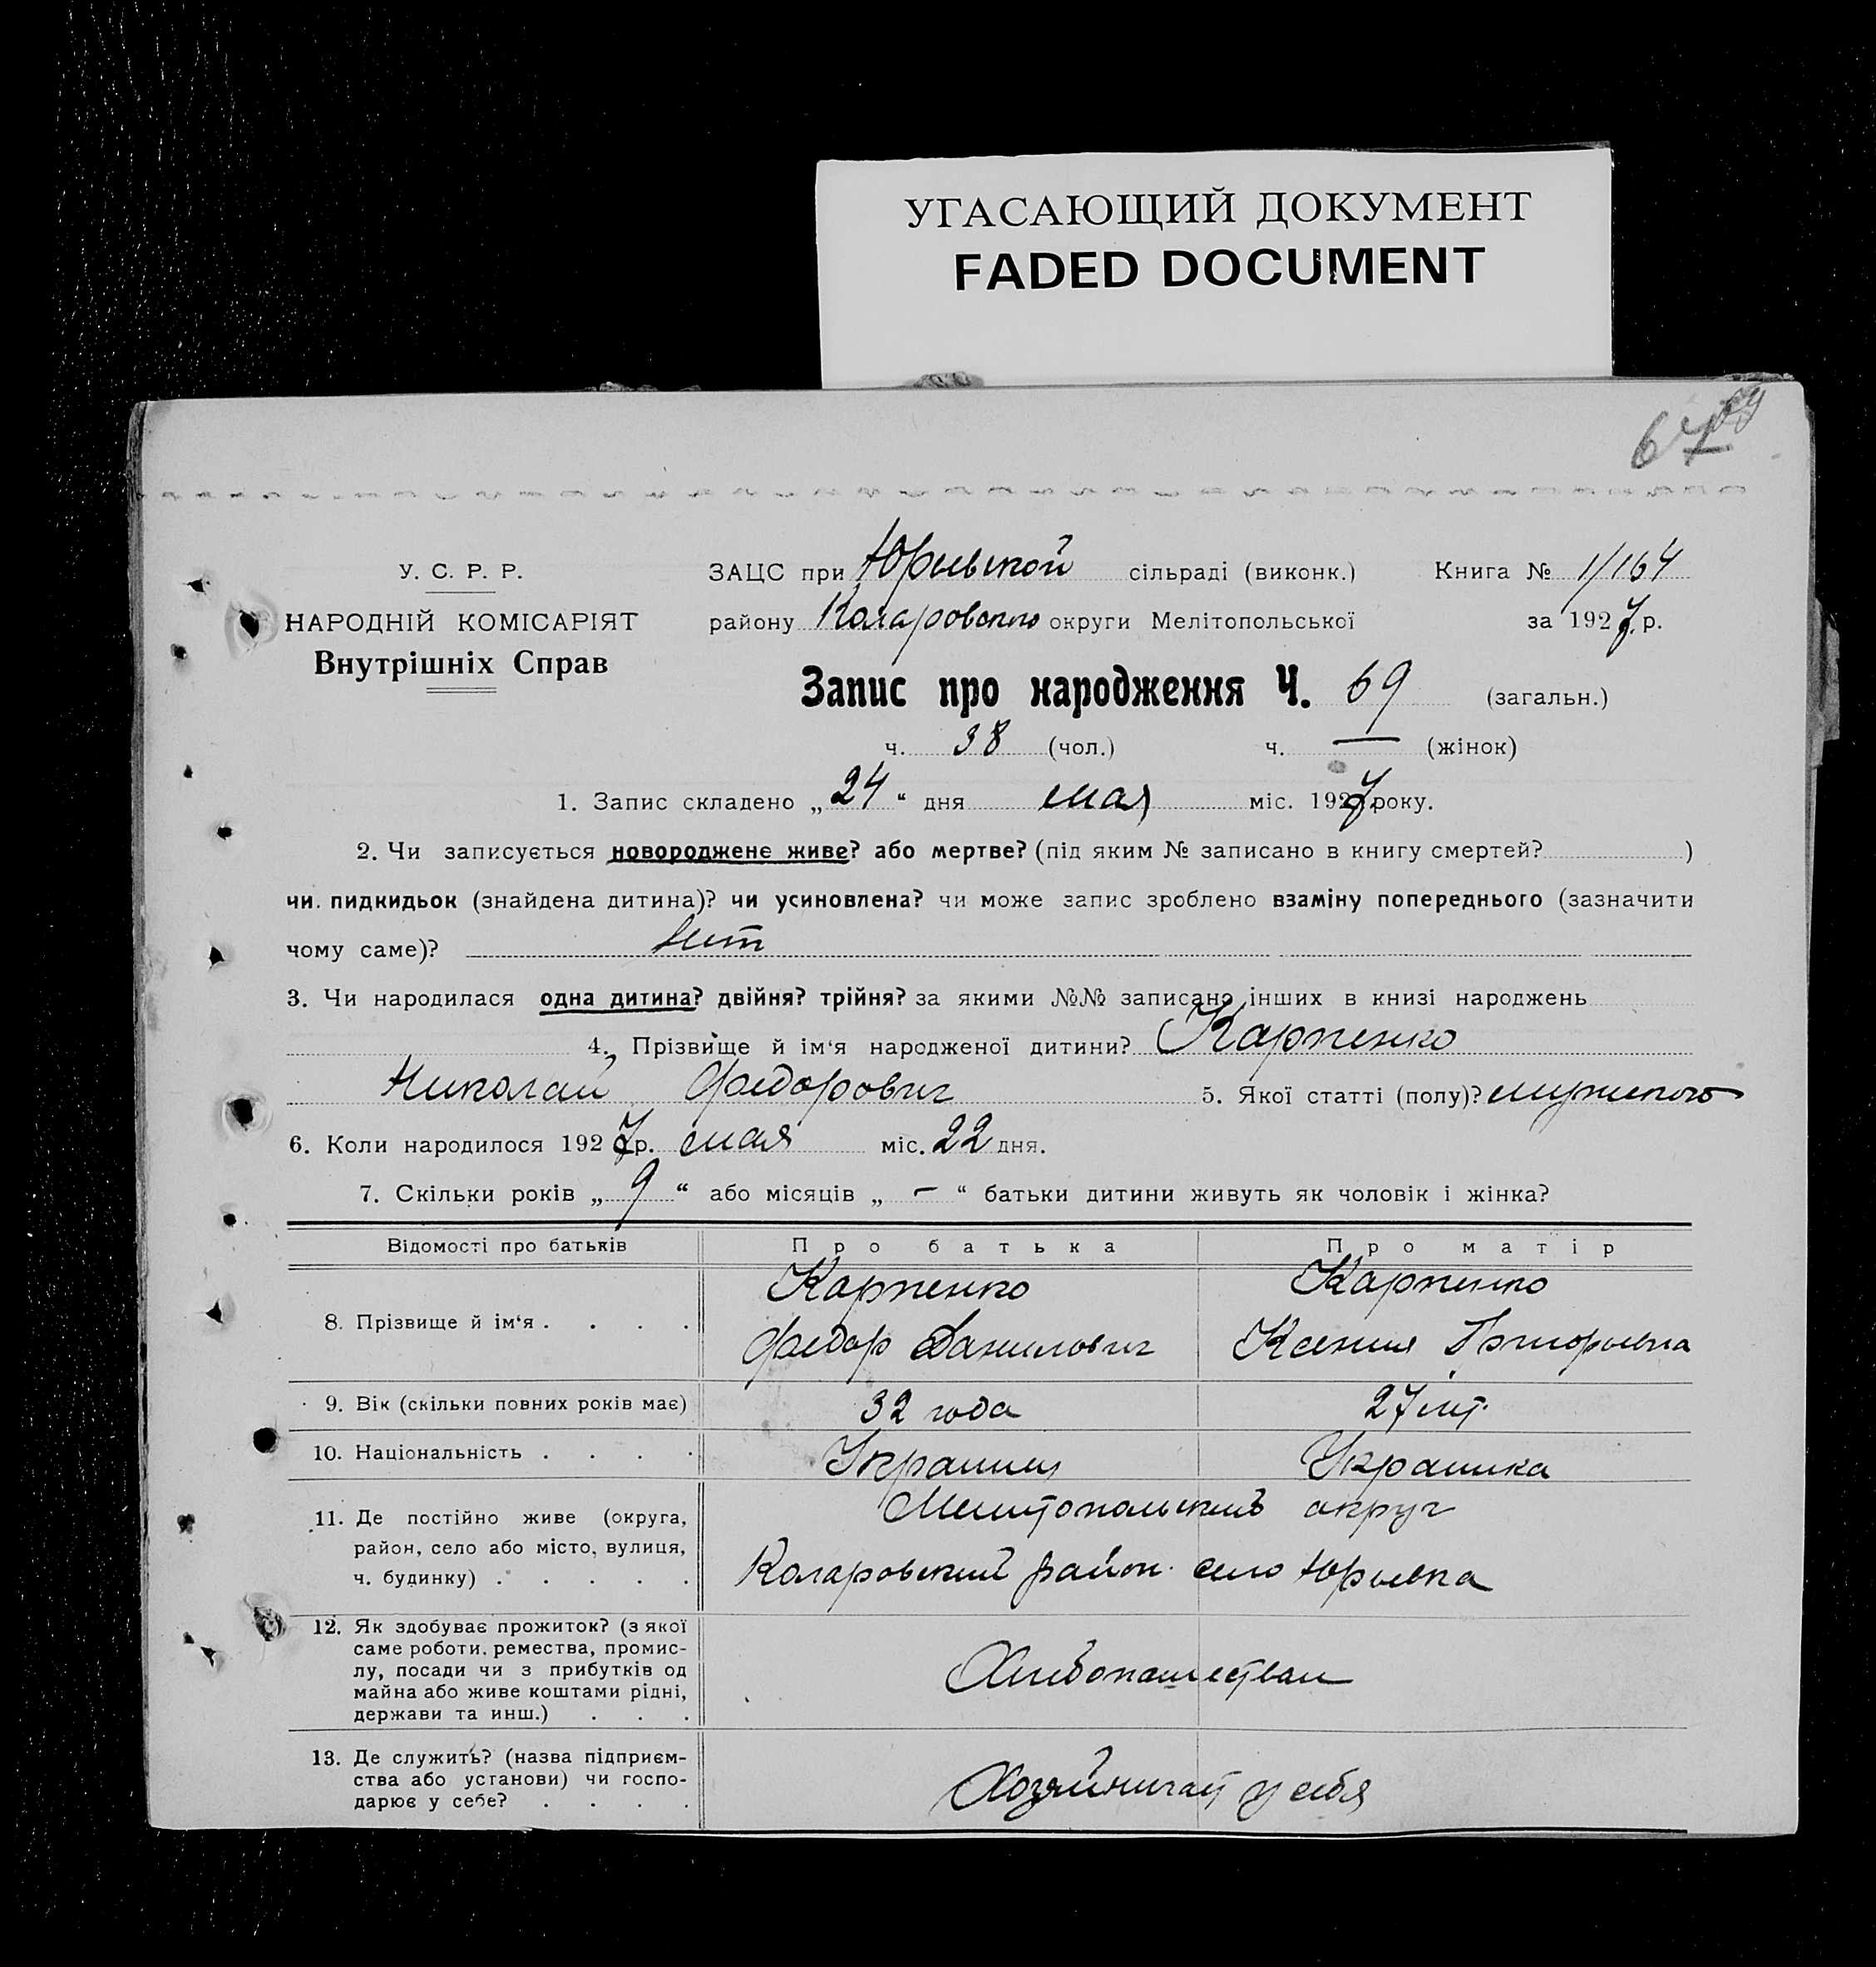 УГАСАЮЩИЙ ДОКУМЕНТ
FADED DOCUMENT
67
У. С. Р. Р.
НАРОДНІЙ КОМІСАРІЯТ
Внутрішніх Справ
ЗАЦС при Юрьевской сільраді (виконк.) Книга № 1/164
району Коларовского округи Мелітопольської за 1927 р.
Запис про народження Ч. 69 (загальн.)
ч. 38 (чол.) ч. — (жінок)
1. Запис складено „ 24 “ дня мая міс. 1927 року.
2. Чи записується новороджене живе? або мертве? (під яким № записано в книгу смертей? )
чи пидкидьок (знайдена дитина)? чи усиновлена? чи може запис зроблено взаміну попереднього (зазначити
чому саме)? Нет
3. Чи народилася одна дитина? двійня? трійня? за якими №№ записано інших в книзі народжень
4. Прізвище й ім‘я народженої дитини? Карпенко
Николай Федорович 5. Якої статті (полу)? мужского
6. Коли народилося 1927 р. мая міс. 22 дня.
7. Скільки років „ 9 “ або місяців „ — “ батьки дитини живуть як чоловік і жінка?
Відомості про батьків Про батька Про матір
8. Прізвище й ім‘я . . . . Карпенко Федор Данилович Карпенко Ксения Григорьевна
9. Вік (скільки повних років має) 32 года 27 лет.
10. Національність . . . . Украинец Украинка
11. Де постійно живе (округа, Мелитопольский округ
район, село або місто, вулиця,
ч. будинку) . . . . . Коларовский район. село Юрьевка
12. Як здобуває прожиток? (з якої
саме роботи, ремества, промис-
лу, посади чи з прибутків од Хлебопашеством
майна або живе коштами рідні,
держави та инш.) . . .
13. Де служить? (назва підприєм-
ства або установи) чи госпо- Хозяйничает у себя
дарює у себе? . . . .